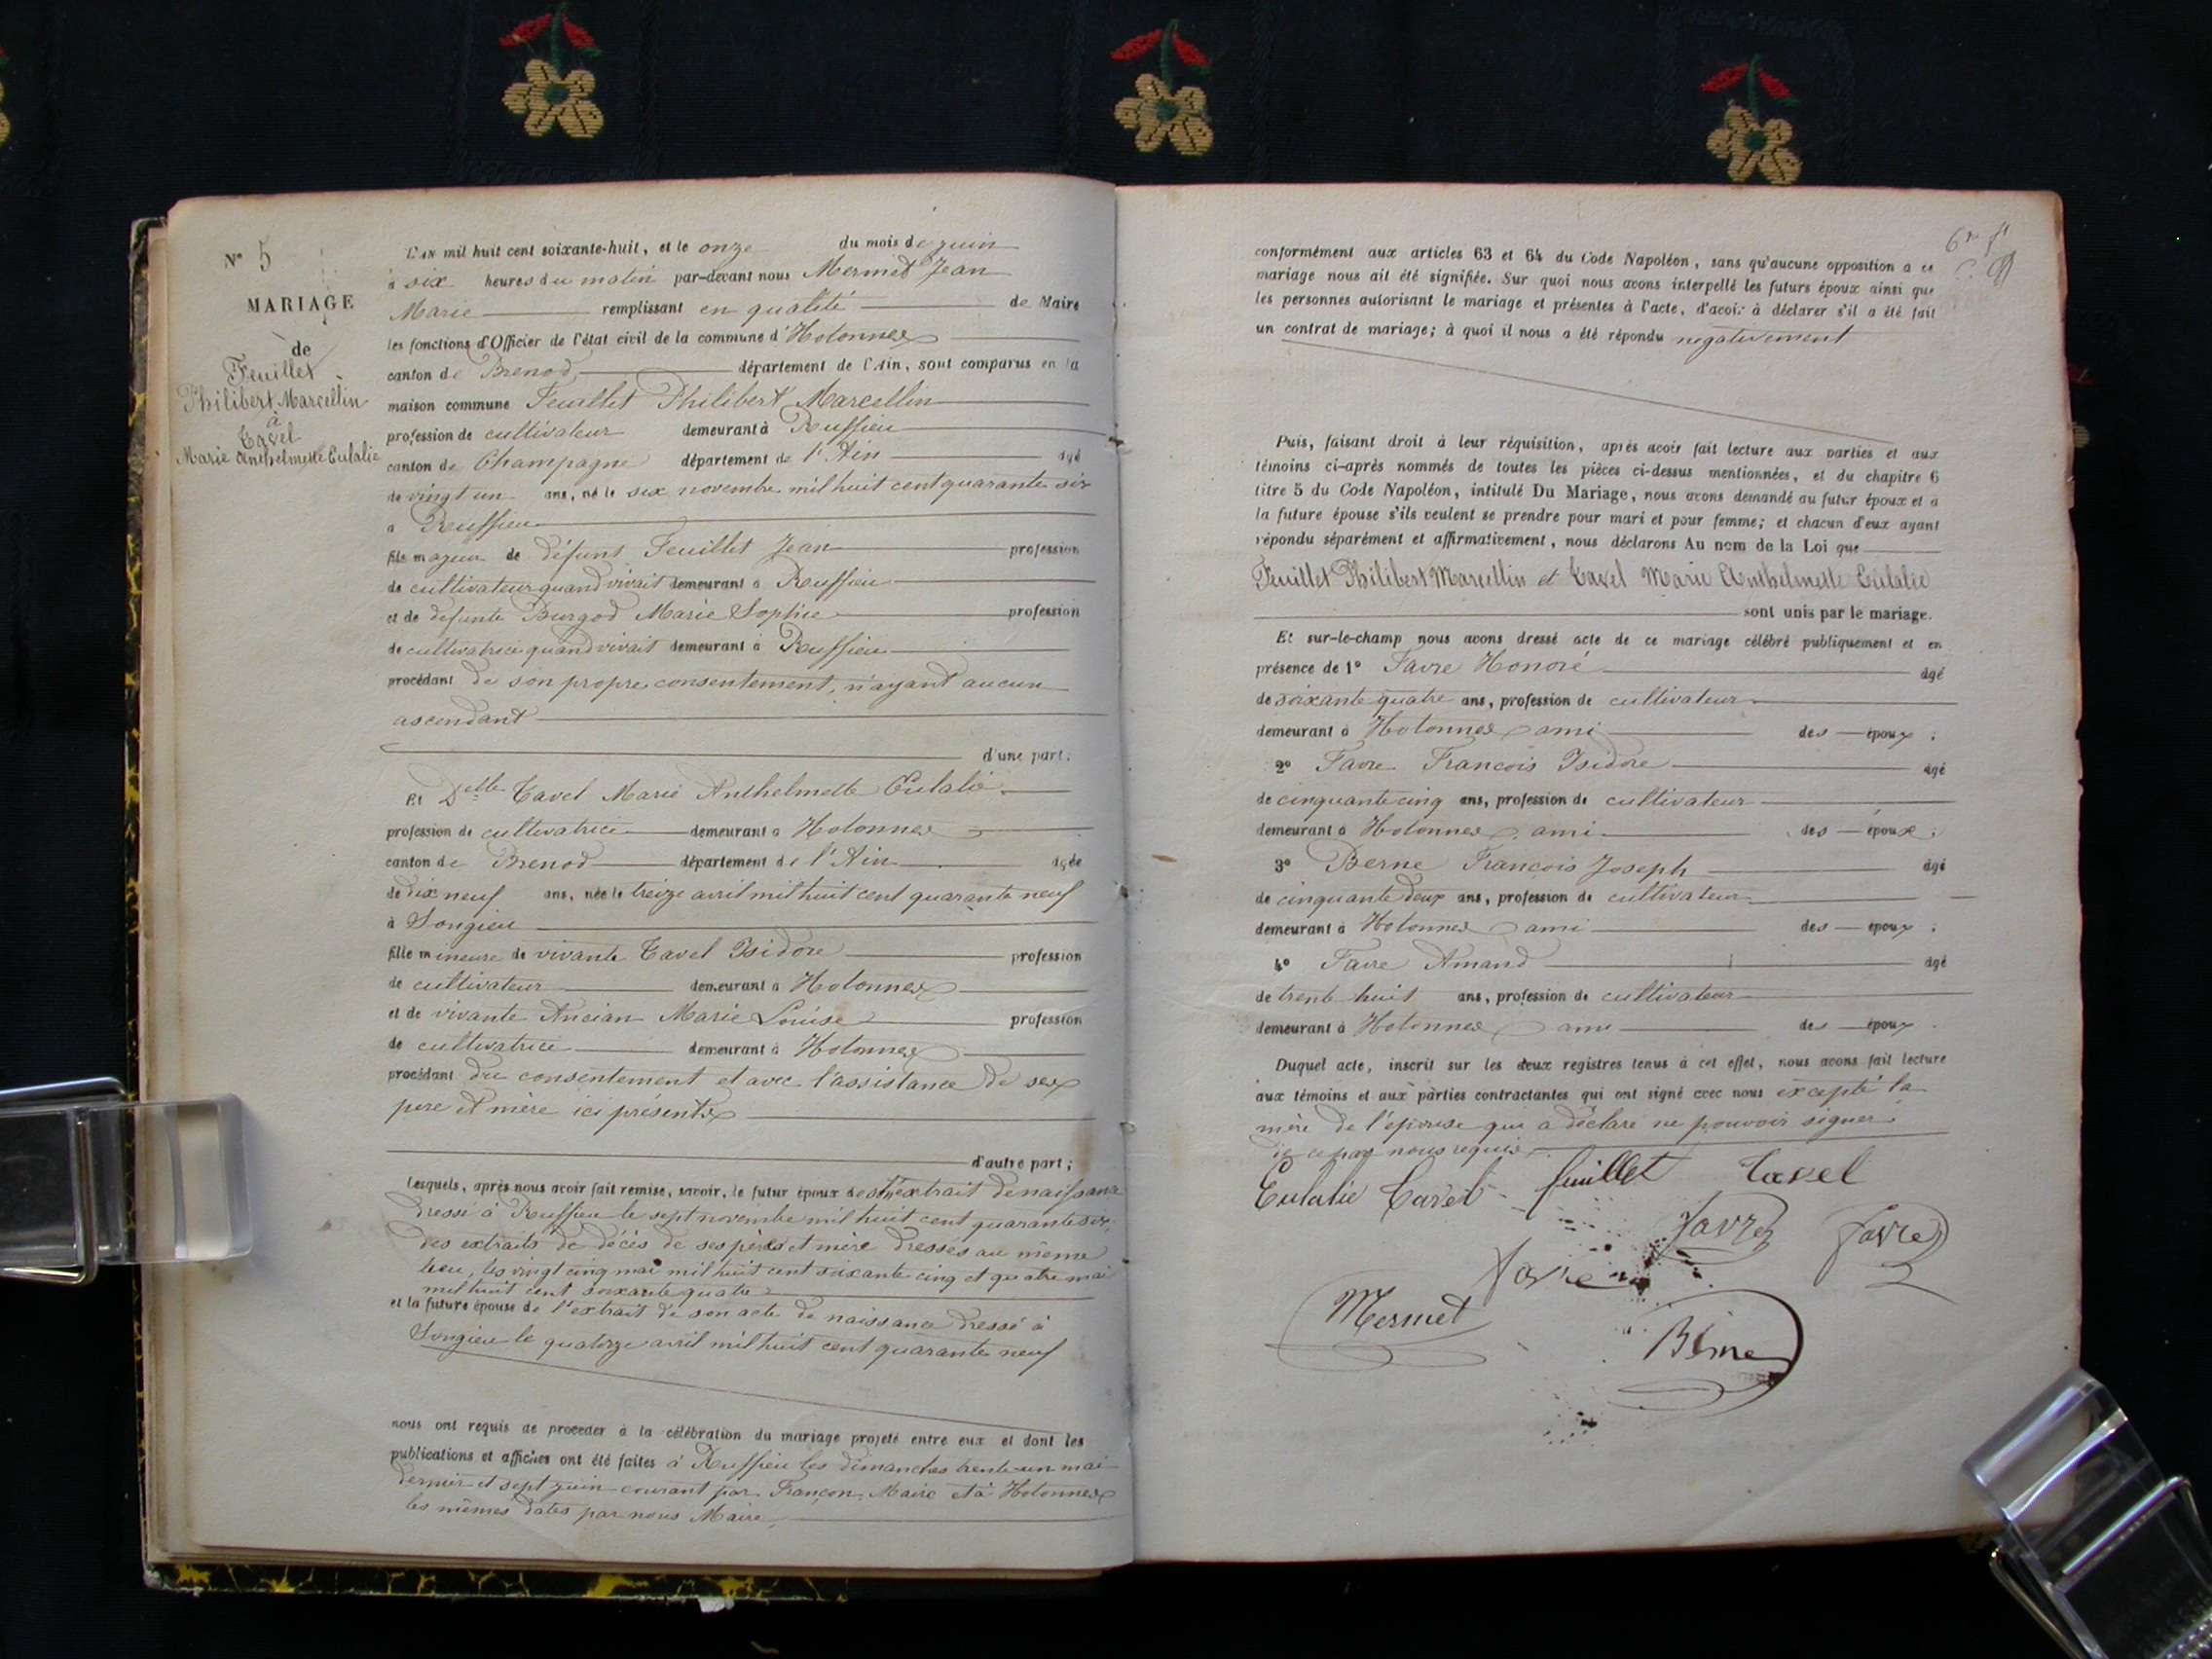 N° 5
MARIAGE
de
Feuillet
Philibert Marcellin
à
Tavel
Marie Anthelmette Eulalie
L'AN mil huit cent soixante-huit, et le onze du mois de juin
à six heures du matin par-devant nous Mermet Jean
Marie remplissant en qualité de Maire
les fonctions d'Officier de l'état civil de la commune d'Hotonnes
canton de Brenod département de l'Ain, sont comparus en la
maison commune Feuillet Philibert Marcellin
profession de cultivateur demeurant à Ruffieu
canton de Champagne département de l'Ain âgé
de vingt un ans, né le six novembre mil huit cent quarante six
à Ruffieu
fils majeur de défunt Feuillet Jean profession
de cultivateur quand vivait demeurant à Ruffieu
et de defunte Burgod Marie Sophie profession
de cultivatrice quand vivait demeurant à Ruffieu
procédant de son propre consentement, n'ayant aucun
ascendant
d'une part.
Et Delle Tavel Marie Anthelmette Eulalie
profession de cultivatrice demeurant à Hotonnes
canton de Brenod département de l'Ain âgée
de dix neuf ans, née le treize avril mil huit cent quarante neuf
à Songieu
fille mineure de vivante Tavel Isidore profession
de cultivateur demeurant à Hotonnes
et de vivante Ancian Marie Louise profession
de cultivatrice demeurant à Hotonnes
procédant du consentement et avec l'assistance de ses
pere et mère ici présents
d'autre part;
Lesquels, après nous avoir fait remise, savoir, le futur époux de l'extrait de naissance
dressé à Ruffieu le sept novembre mil huit cent quarante six,
des extraits de décès de ses père et mère dressés au même
lieu, les vingt cinq mai mil huit cent soixante cinq et quatre mai
mil huit cent soixante quatre
et la future épouse de l'extrait de son acte de naissance dressé à
Songieu le quatorze avril mil huit cent quarante neuf
nous ont requis de procéder à la célébration du mariage projeté entre eux et dont les
publications et affiches ont été faites à Ruffieu les dimanches trente-un mai
dernier et sept juin courant par Françon, Maire et à Hotonnes
les mêmes dates par nous Maire
conformément aux articles 63 et 64 du Code Napoléon, sans qu'aucune opposition a ce
mariage nous ait été signifiée. Sur quoi nous avons interpellé les futurs époux ainsi que
les personnes autorisant le mariage et présentes à l'acte, d'avoir à déclarer s'il a été fait
un contrat de mariage; à quoi il nous a été répondu négativement
Puis, faisant droit à leur réquisition, après avoir fait lecture aux parties et aux
témoins ci-après nommés de toutes les pièces ci-dessus mentionnées, et du chapitre 6
titre 5 du Code Napoléon, intitulé Du Mariage, nous avons demandé au futur époux et à
la future épouse s'ils veulent se prendre pour mari et pour femme; et chacun d'eux ayant
répondu séparément et affirmativement, nous déclarons Au nom de la Loi que
Feuillet Philibert Marcellin et Tavel Marie Anthelmette Eulalie
sont unis par le mariage.
Et sur-le-champ nous avons dressé acte de ce mariage célébré publiquement et en
présence de 1° Favre Honoré âgé
de soixante quatre ans, profession de cultivateur
demeurant à Hotonnes ami des époux;
2° Favre François Isidore âgé
de cinquante cinq ans, profession de cultivateur
demeurant à Hotonnes ami des époux;
3° Berne François Joseph âgé
de cinquante deux ans, profession de cultivateur
demeurant à Hotonnes ami des époux;
4° Favre Amand âgé
de trente huit ans, profession de cultivateur
demeurant à Hotonnes ami des époux.
Duquel acte, inscrit sur les deux registres tenus à cet effet, nous avons fait lecture
aux témoins et aux parties contractantes qui ont signé avec nous excepté la
mère de l'épouse qui a déclaré ne pouvoir signer
de ce par nous requis
Eulalie Tavel feuillet Tavel
Favre Favre
Favre
Mermet
Berne